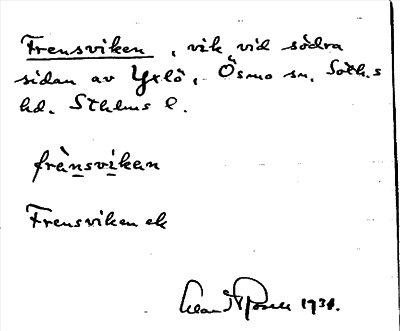 Frensviken, vik vid södra
sidan av Yxlö, Ösmo sn, Soth.s
hd. Sthlms l.
frènsviken
Frensviken ek
1931.